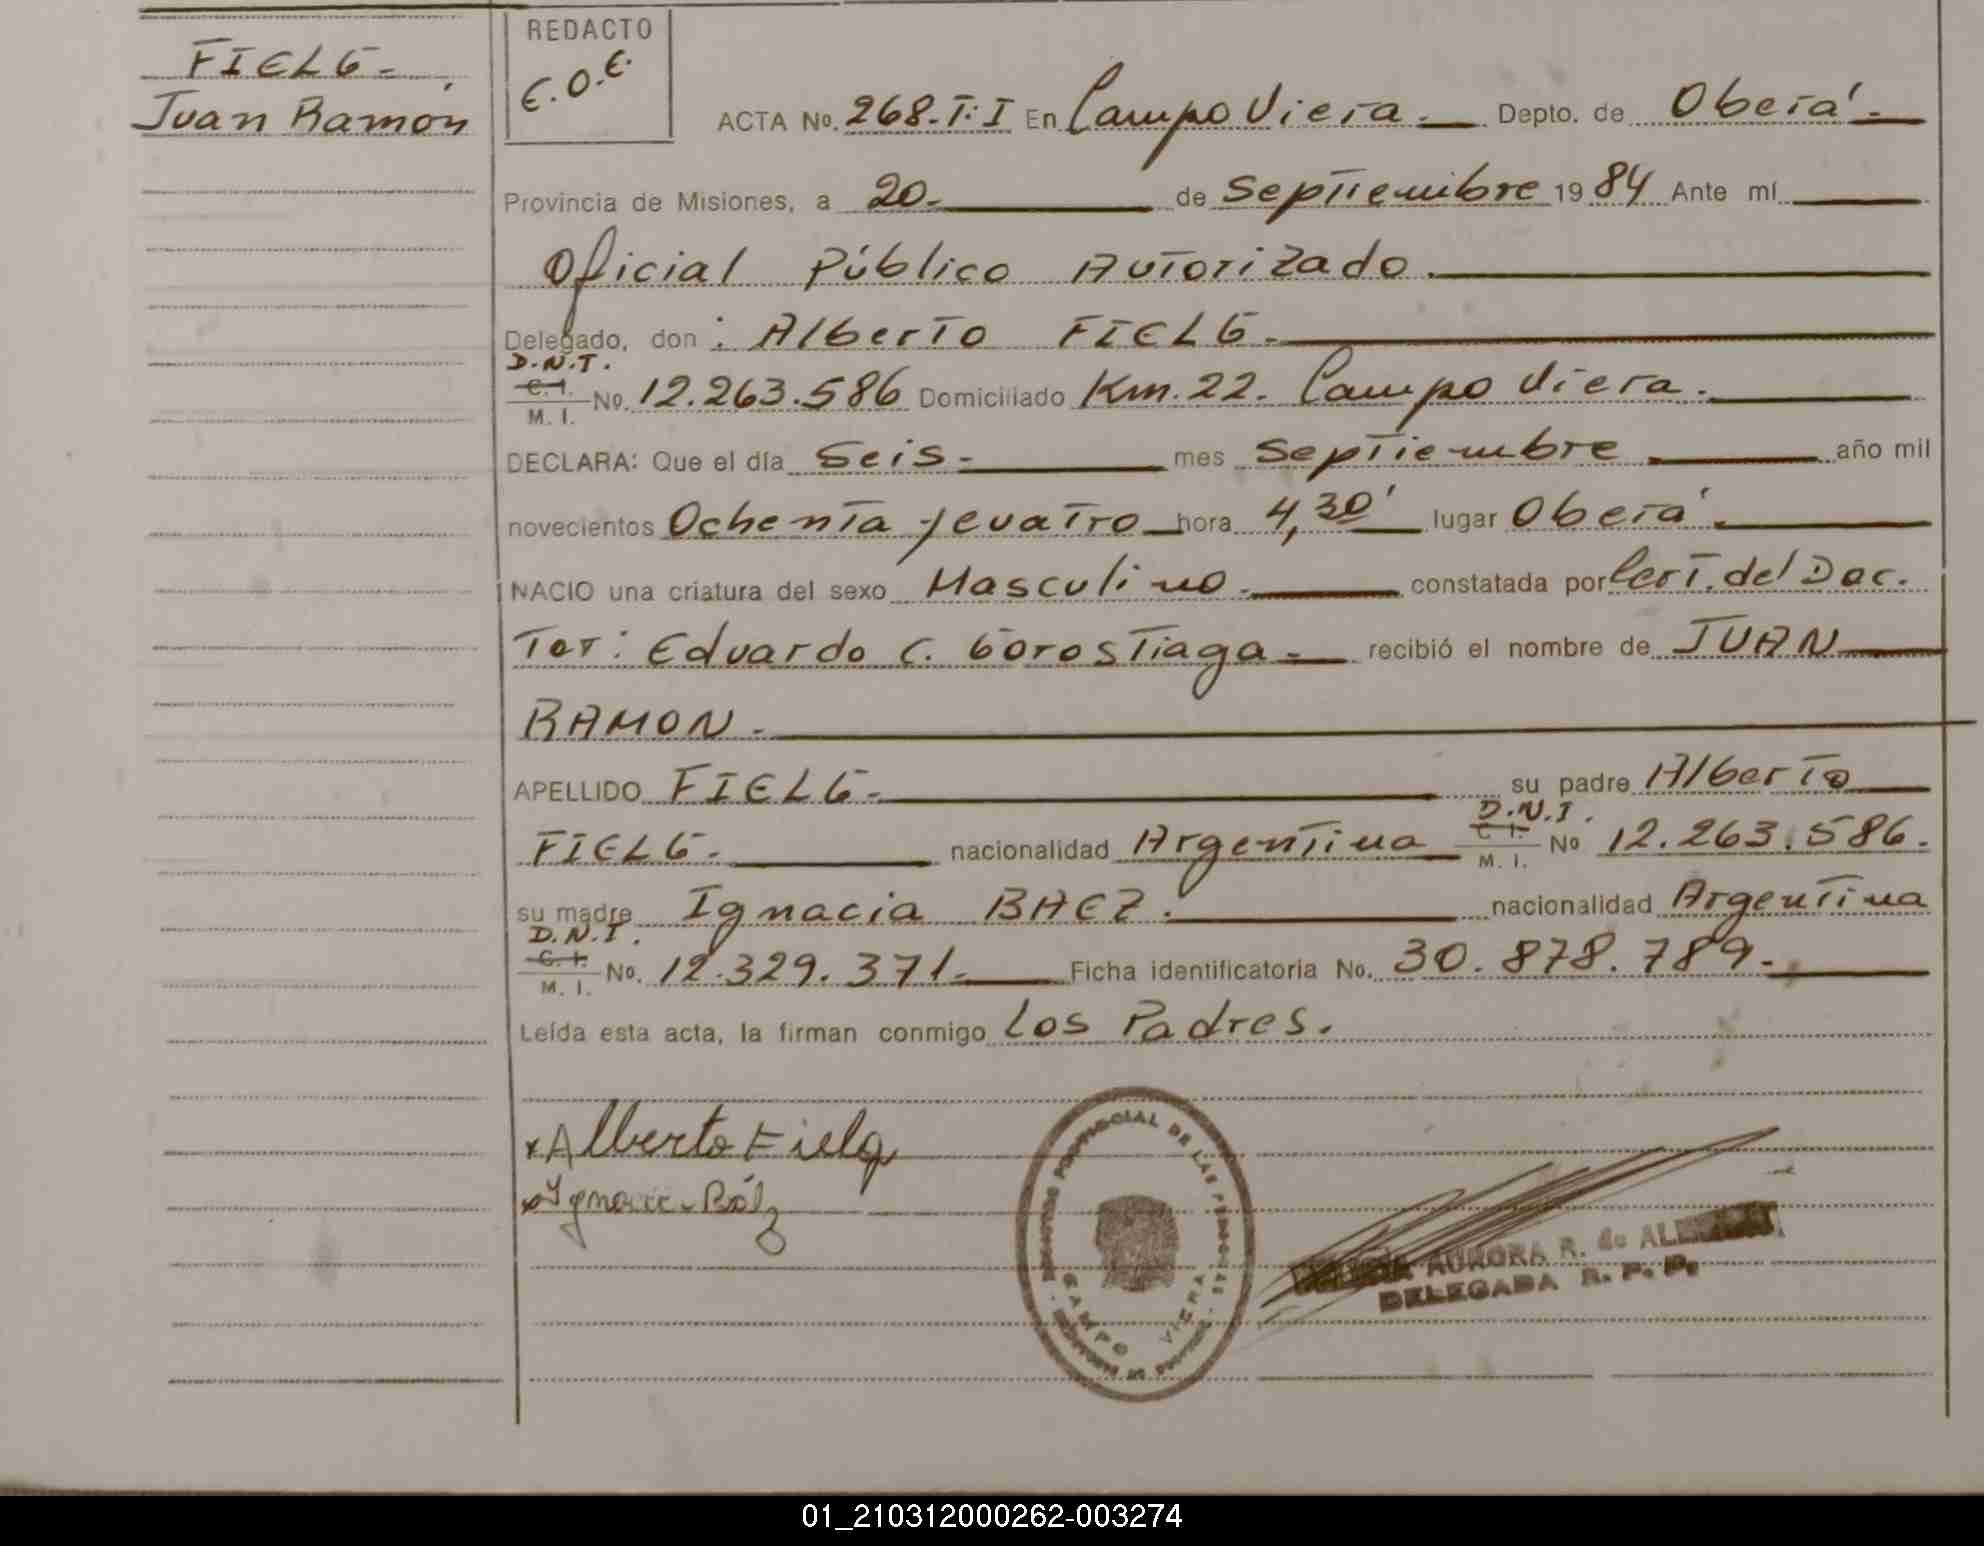 FIELG.
Juan Ramón
REDACTO
E.O.E.
ACTA No. 268.T:I En Campo Viera. Depto. de Oberá.
Provincia de Misiones, a 20. de Septiembre 1984 Ante mí
Oficial Público Autorizado.
Delegado, don: Alberto FIELG.
D.N.I.
C. I.
M. I. No. 12.263.586 Domiciliado Km. 22. Campo Viera.
DECLARA: Que el día Seis. mes Septiembre año mil
novecientos Ochenta y cuatro hora 4,30' lugar Oberá.
NACIO una criatura del sexo Masculino. constatada por Cert. del Doc.
Tor: Eduardo C. Gorostiaga. recibió el nombre de JUAN
RAMON.
APELLIDO FIELG. su padre Alberto
D.N.I.
FIELG. nacionalidad Argentina C. I. M. I. No 12.263.586.
su madre Ignacia BAEZ. nacionalidad Argentina
D.N.I.
C. I.
M. I. No. 12.329.371. Ficha identificatoria No. 30.878.789.
Leída esta acta, la firman conmigo Los Padres.
x Alberto Fielg
x Ignacia Báez
PROVINCIAL DE LAS PERSONAS
CAMPO VIERA
AURORA R. de
DELEGADA R. P. P.
01_210312000262-003274